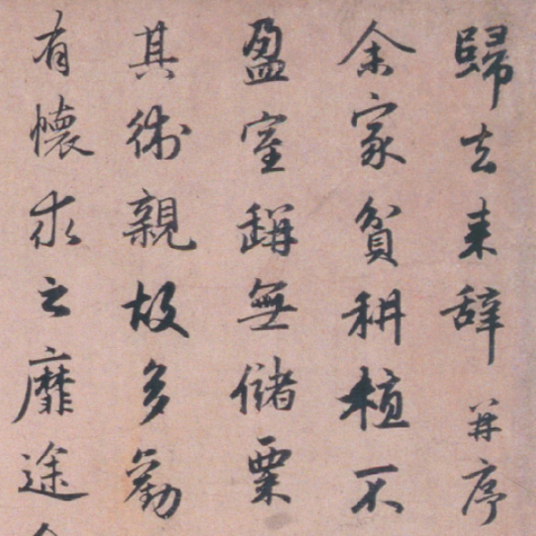 歸去来辞并序
余家貧耕植不
盈室缾無儲粟
其術親故多勸
有懷求之靡途